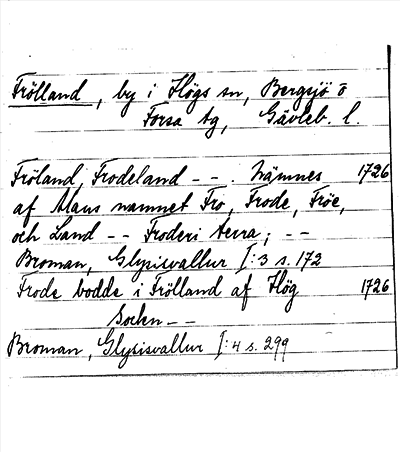 Frölland, by i Högs sn, Bergsjö o
Forsa tg, Gävleb. l.
Fröland, Frodeland - - . Nämnes 1726
af Mans namnet Fro, Frode, Fröe,
och Land - - Froderi terra; - -
Broman, Glysisvallur I:3 s. 172
Frode bodde i Frölland af Hög 1726
Socken - -
Broman, Glysisvallur I:4 s. 299